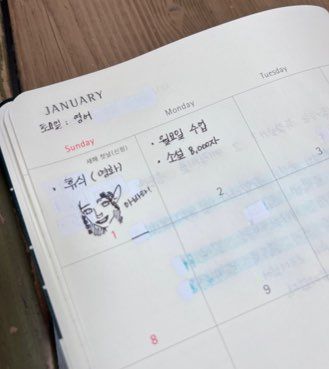 JANUARY
토요일 : 영어
Sunday
Monday
Tuesday
새해 첫날(신정)
• 휴식 (영화)
아바타
1
• 월요일 수업
• 소설 8,000자
2
3
8
9